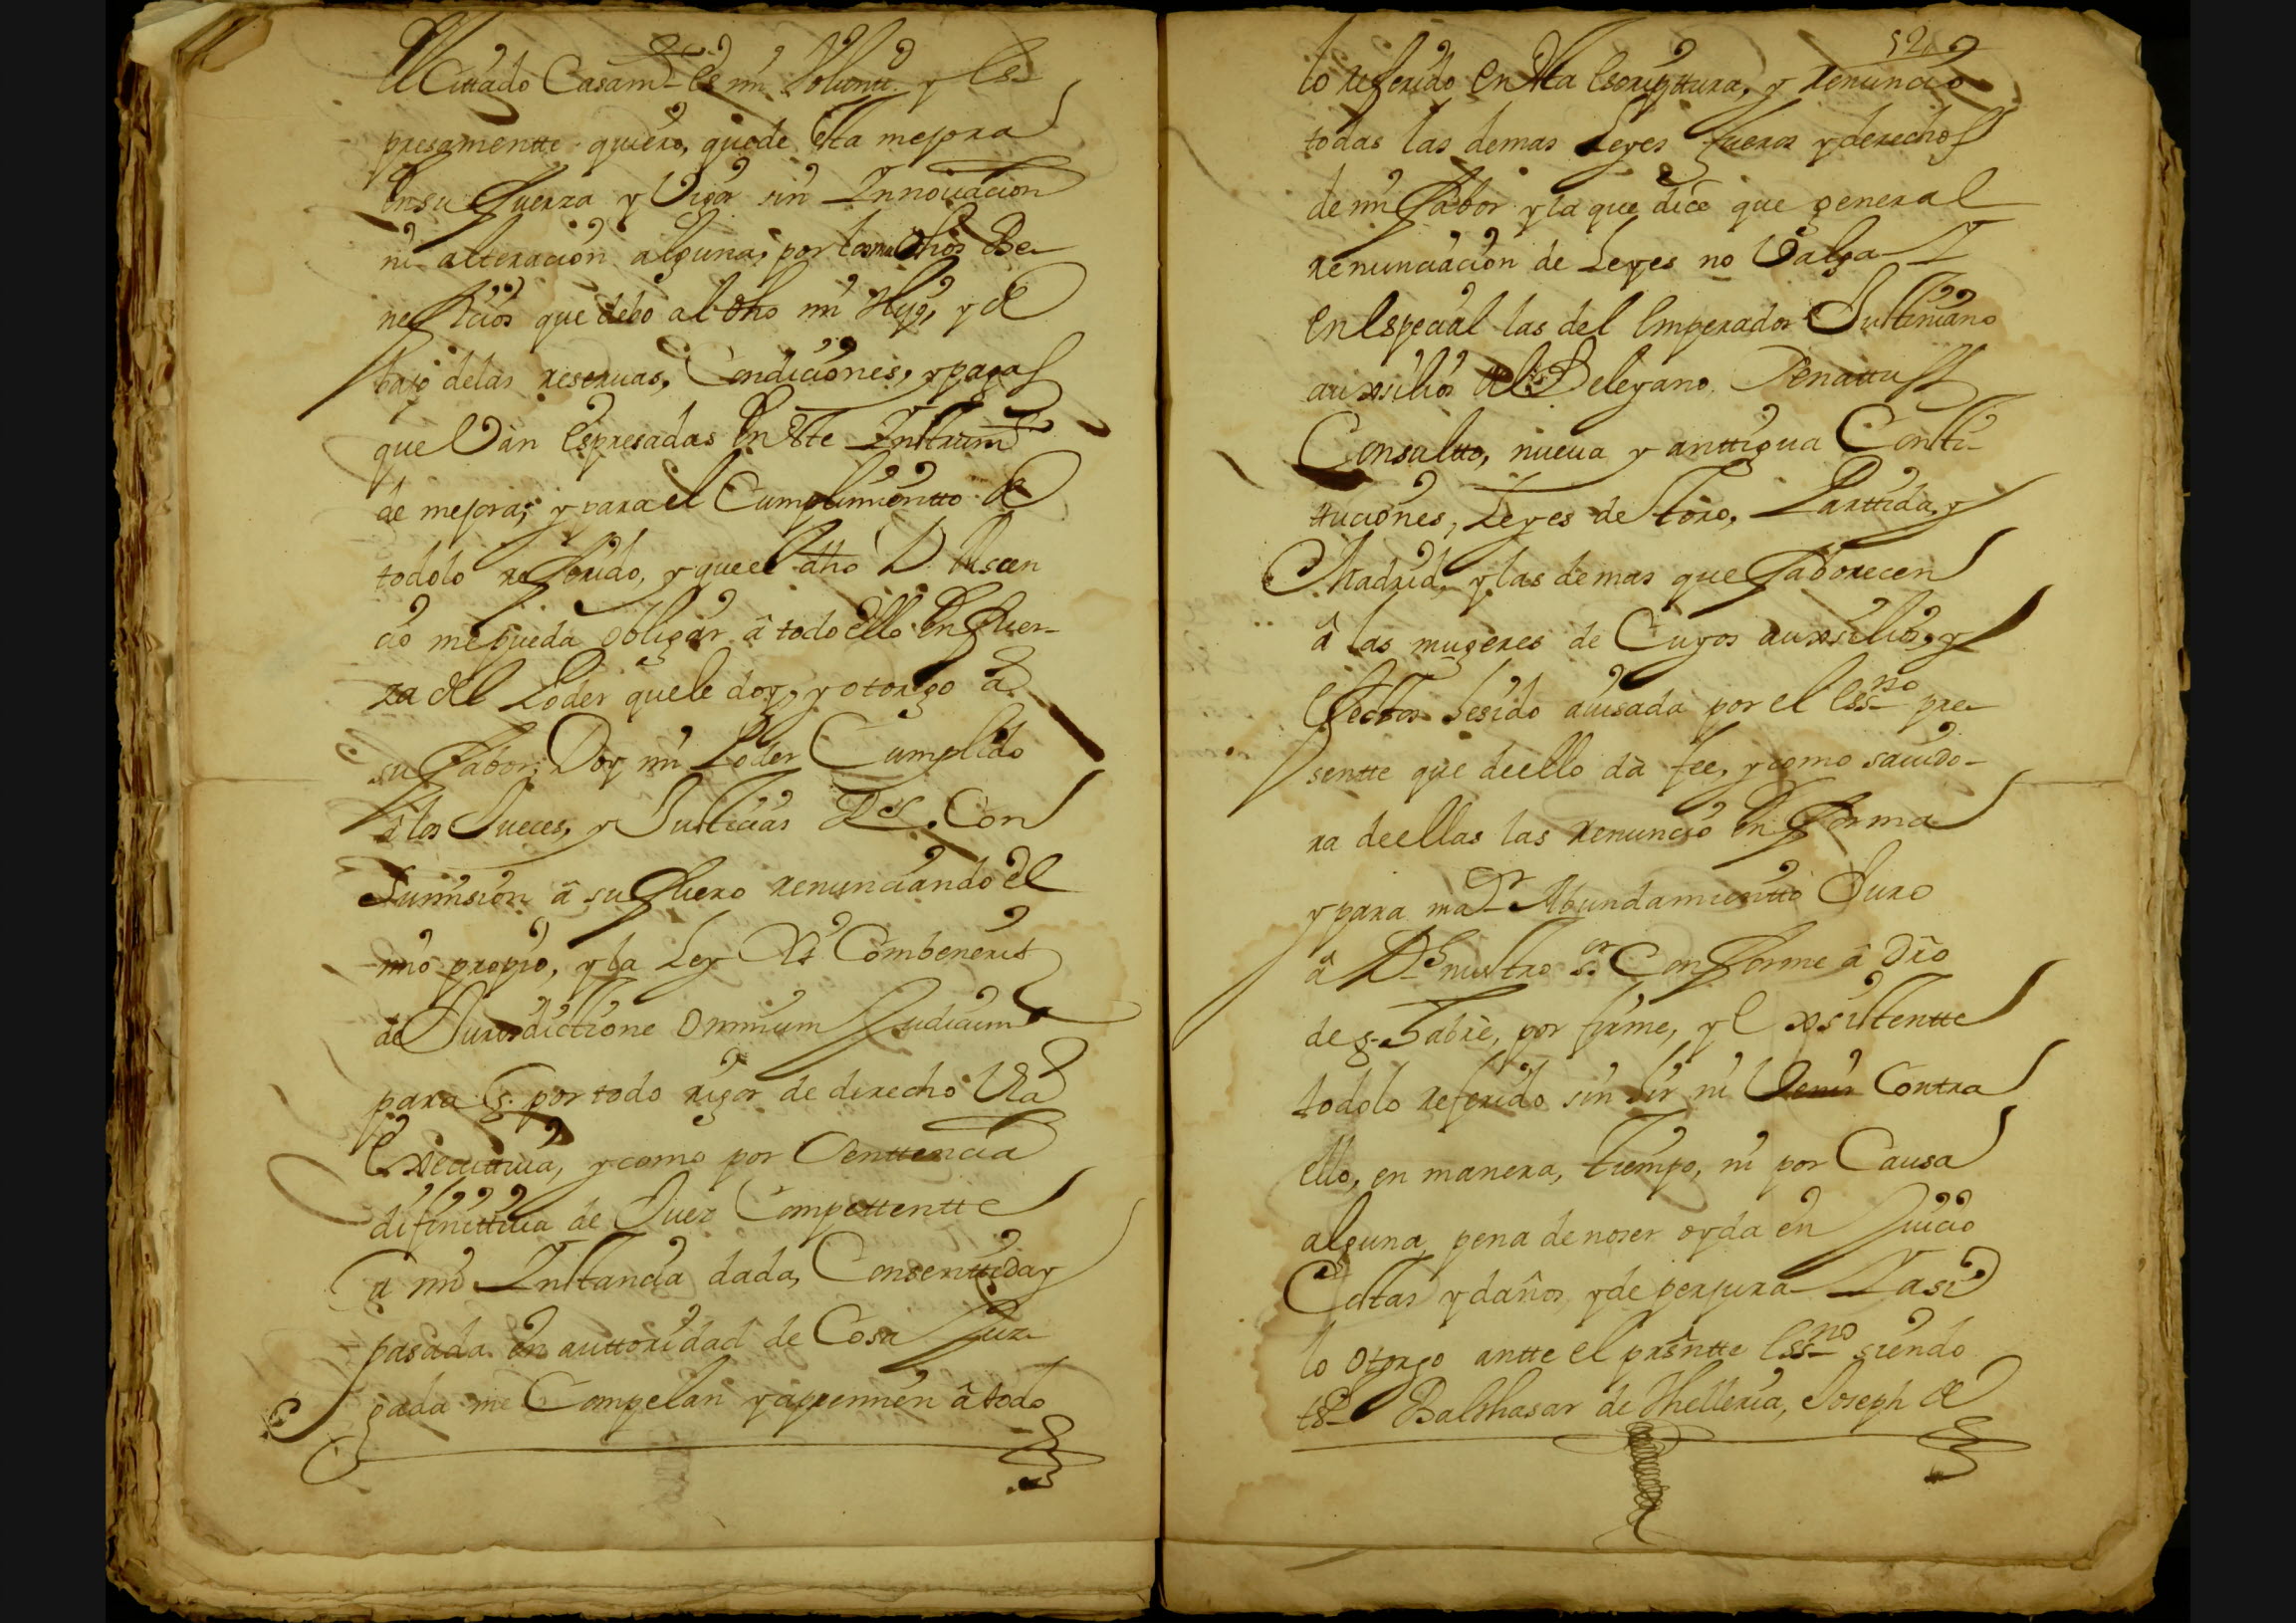 el Cittado Casamto es mi Voluntd y es
presamentte quiero, quede esta mejora
en su fuerza y Vigor sin Innovacion
ni alteracion alguna, por los muchos Be
neficios que debo al dho mi Hijo, y de
bajo delas reseruas, Condiciones, y pagas
que Van espresadas en este Instrumto
de mejora; y para el Cumplimientto de
todolo referido, y que el dho D. Ascen
cio me pueda obligar â todo ello en fuer-
za del Poder quele doy, y otorgo a
su fabor; Doy mi Poder Cumplido
â los Jueces, y Justicias Rs. Con
Sumision â su fuero renunciando el
mio propio, y la Ley Si Combenerit
de Jurisdictione omnium Judicum
para q. por todo rigor de derecho Via
Executtiua, y como por Senttencia
difinittiua de Juez Compettentte
a mi Instancia dada, Consenttida y
pasada en auttoridad de Cosa Juz
gada me Compelan y appremien â todo
520
lo referido en esta escripttura, y renuncio
todas las demas Leyes fueros y derechos
de mi fabor y la que dice que general
renunciacion de Leyes no Valga Y
en especial las del Emperador Justiniano
auxsilios del Beleyano, Senattus
Consultto, nueua y anttigua Consti-
ttuciones, Leyes de Toro, Parttida, y
Madrid, y las demas que faborecen
â las mugeres de Cuyos auxsilios, y
efecttos he sido auisada por el essno pre
sentte que deello da fee, y como sauido-
ra deellas las renuncio en forma
y para mar Abundamientto Juro
â Ds nuestro sr Conforme â dro
de q. Habrè, por firme, y exsistentte
todolo referido sin ir ni Venir Contra
ello, en manera, tiempo, ni por Causa
alguna, pena de no ser oyda en Juicio
Costas y daños y de perjura Y asi
lo otorgo antte el presntte essno siendo
tso Balthasar de Thelleria, Joseph de